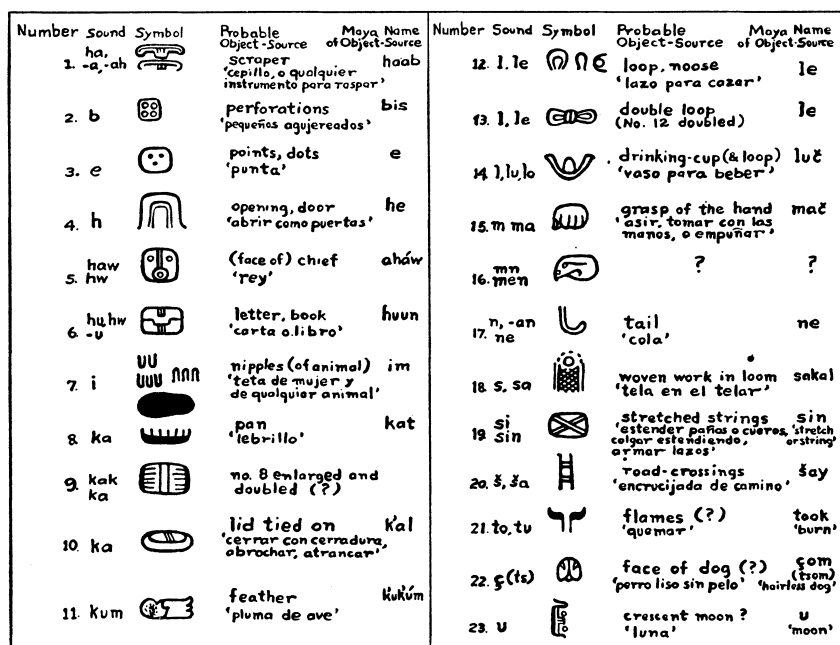 Number Sound Symbol Probable Object-Source Maya Name of Object-Source
1. ha, -a, -ah scraper haab
'cepillo, o qualquier
instrumento para raspar'
2. b perforations bis
'pequeños agujereados'
3. e points, dots e
'punta'
4. h opening, door he
'abrir como puertas'
5. haw hw (face of) chief aháw
'rey'
6. hu, hw -u letter, book huun
'carta o libro'
7. i nipples (of animal) im
'teta de mujer y
de qualquier animal'
8. ka pan kat
'lebrillo'
9. kak ka no. 8 enlarged and
doubled (?)
10. ka lid tied on k'al
'cerrar con cerradura,
abrochar, atrancar'
11. kum feather k'uk'úm
'pluma de ave'
Number Sound Symbol Probable Object-Source Maya Name of Object-Source
12. l, le loop, noose le
'lazo para cazar'
13. l, le double loop le
(No. 12 doubled)
14. l, lu, lo drinking-cup (& loop) luč
'vaso para beber'
15. m ma grasp of the hand mač
'asir, tomar con las
manos, o empuñar'
16. mn men ? ?
17. n, -an ne tail ne
'cola'
18. s, sa woven work in loom sakal
'tela en el telar'
19. si sin stretched strings sin
'estender paños o cueros, 'stretch
colgar estendiendo, or string'
armar lazos'
20. š, ša road-crossings šay
'encrucijada de camino'
21. to, tu flames (?) took
'quemar' 'burn'
22. ç (ts) face of dog (?) çom (tsom)
'perro liso sin pelo' 'hairless dog'
23. u crescent moon ? u
'luna' 'moon'